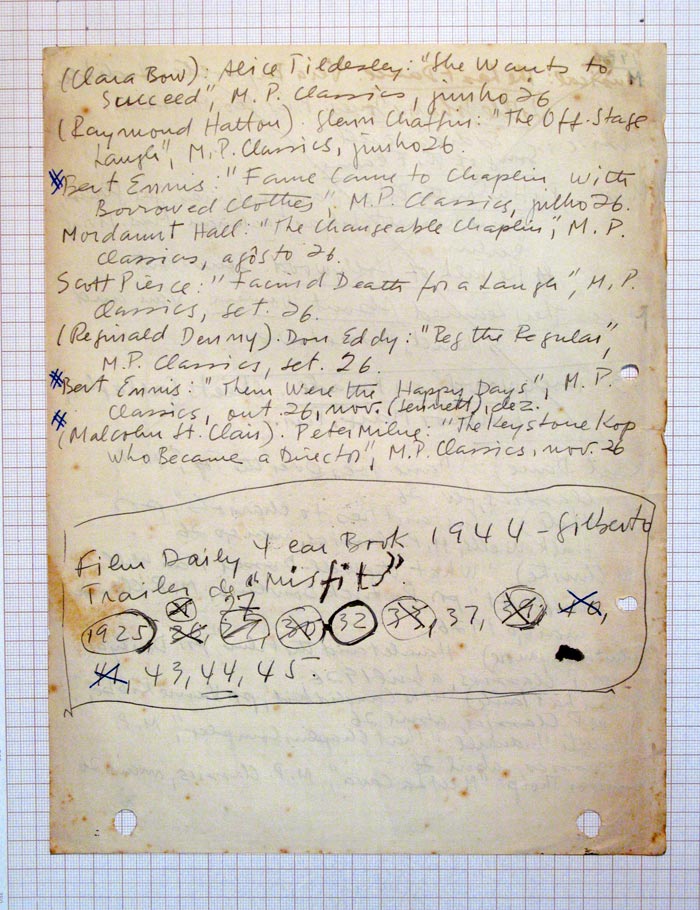 (Clara Bow): Alice Tildesley: "She Wants to
Succeed", M.P. Classics, junho 26
(Raymond Hatton). Glenn Chaffin: "The Off-Stage
Laugh", M.P. Classics, junho 26.
Bert Ennis: "Fame Came to Chaplin with
Borrowed Clothes", M.P. Classics, julho 26.
Mordaunt Hall: "The Changeable Chaplin", M.P.
Classics, agôsto 26.
Scott Pierce: "Facind Death for a Laugh", M.P.
Classics, set. 26.
(Reginald Denny). Don Eddy: "Reg the Regular",
M.P. Classics, set. 26.
Bert Ennis: "Them Were the Happy Days", M.P.
Classics, out. 26, nov. (Sennett), dez.
(Malcolm St. Clair). Peter Milne: "The Keystone Kop
Who Became a Director", M.P. Classics, nov. 26
Film Daily Year Book 1944 - Gilberto
Trailer de "Misfits".
27
1925, 26, 30, 32, 33, 37, 39, 40,
41, 43, 44, 45.